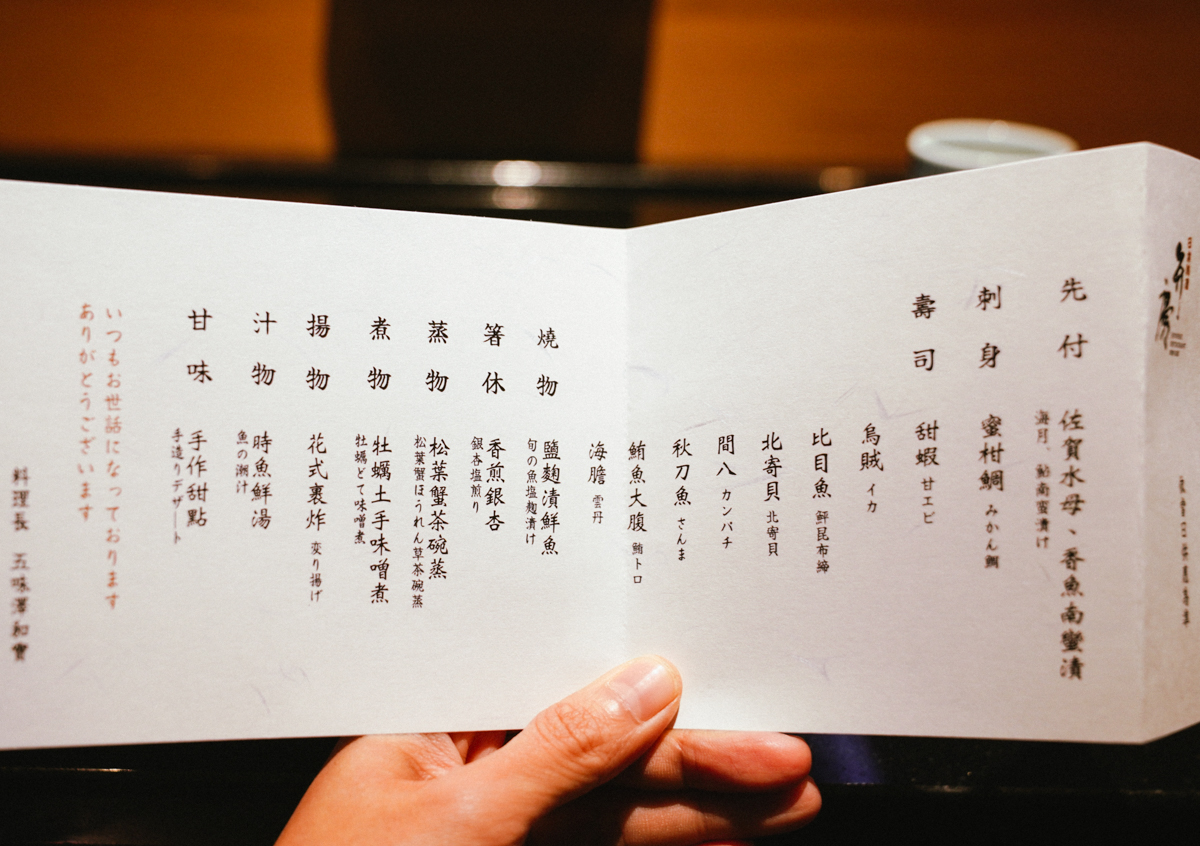 先付
佐賀水母、香魚南蠻漬
海月、鮎南蛮漬け
刺身
蜜柑鯛 みかん鯛
壽司
甜蝦 甘エビ
烏賊 イカ
比目魚 鮃昆布締
北寄貝 北寄貝
間八 カンパチ
秋刀魚 さんま
鮪魚大腹 鮪トロ
海膽 雲丹
燒物
鹽麴漬鮮魚
旬の魚塩麹漬け
箸休
香煎銀杏
銀杏塩煎り
蒸物
松葉蟹茶碗蒸
松葉蟹ほうれん草茶碗蒸
煮物
牡蠣土手味噌煮
牡蠣どて味噌煮
揚物
花式裹炸 変り揚げ
汁物
時魚鮮湯
魚の潮汁
甘味
手作甜點
手造りデザート
いつもお世話になっております
ありがとうございます
料理長 五味澤和實